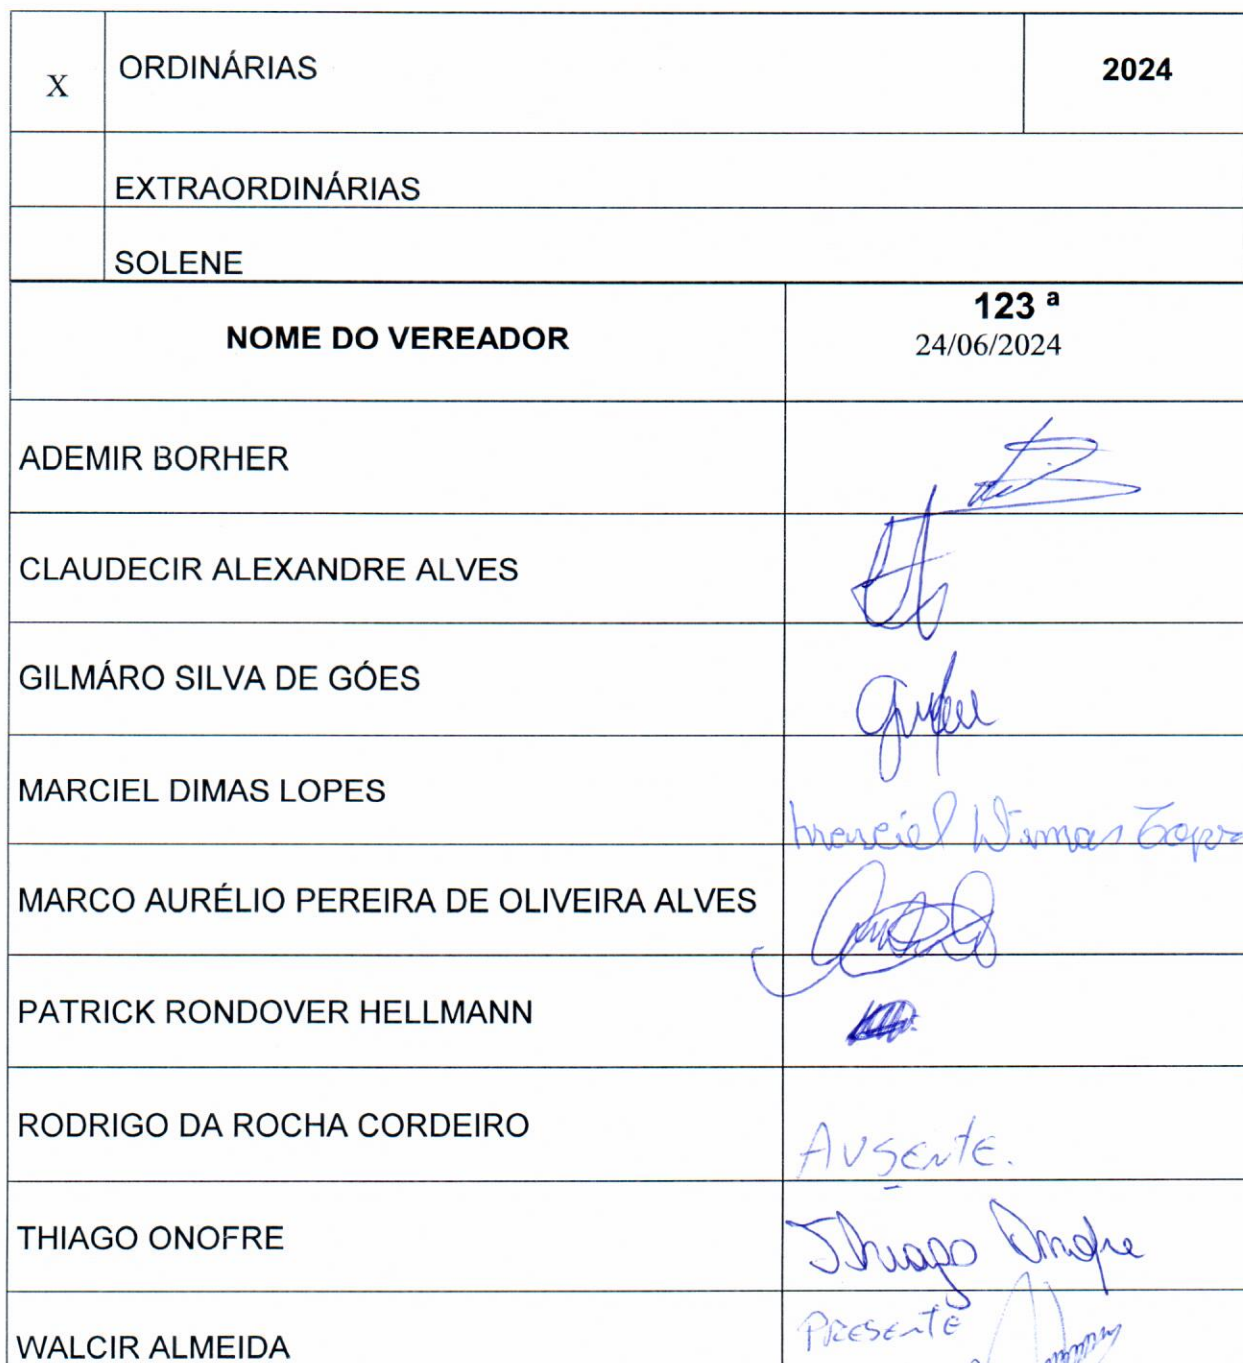 X ORDINÁRIAS 2024
EXTRAORDINÁRIAS
SOLENE
NOME DO VEREADOR 123 ª
24/06/2024
ADEMIR BORHER
CLAUDECIR ALEXANDRE ALVES
GILMÁRO SILVA DE GÓES
MARCIEL DIMAS LOPES Marciel Dimas Lopes
MARCO AURÉLIO PEREIRA DE OLIVEIRA ALVES
PATRICK RONDOVER HELLMANN
RODRIGO DA ROCHA CORDEIRO AUSENTE.
THIAGO ONOFRE Thiago Onofre
WALCIR ALMEIDA PRESENTE